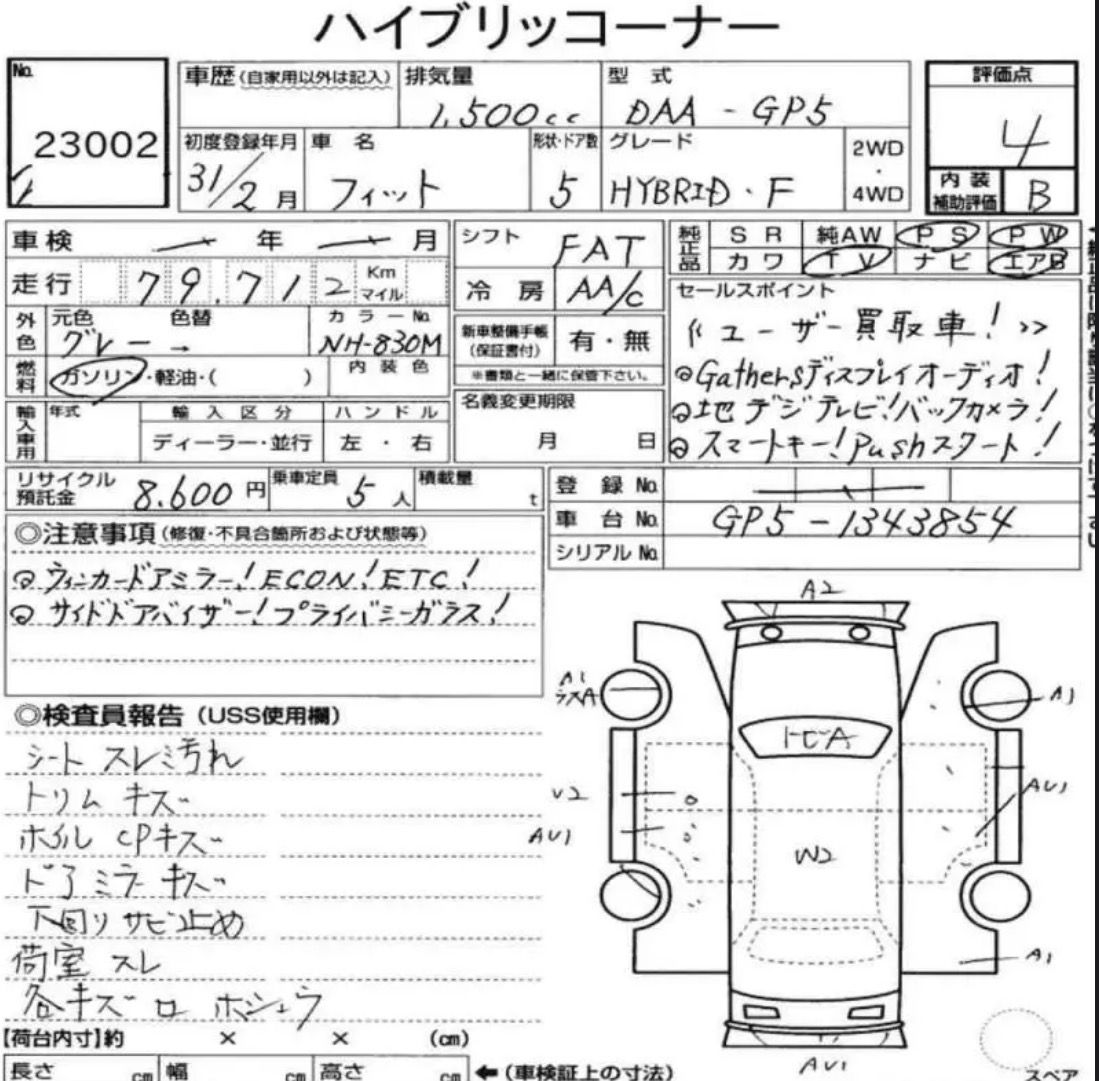 ハイブリッコーナー
No. 23002
車歴(自家用以外は記入) 排気量 1,500cc 型式 DAA-GP5
評価点 4
初度登録年月 31/2月 車名 フィット 形状・ドア数 5 グレード HYBRID・F 2WD・4WD
内装補助評価 B
車検 年 月
走行 79.712 Km マイル
シフト FAT
冷房 AA/C
純正品 SR 純AW PS PW
カワ TV ナビ エアB
外色 元色 色替 グレー→ カラーNo. NH-830M
燃料 ガソリン・軽油・( ) 内装色
新車整備手帳(保証書付) 有・無
※書類と一緒に保管下さい。
セールスポイント
《ユーザー買取車!》
◎Gathersディスプレイオーディオ!
◎地デジテレビ!バックカメラ!
◎スマートキー!Pushスタート!
輸入車用 年式 輸入区分 ハンドル
ディーラー・並行 左・右
名義変更期限
月 日
リサイクル預託金 8.600円 乗車定員 5人 積載量 t
登録No.
車台No. GP5-1343854
シリアルNo.
◎注意事項(修復・不具合箇所および状態等)
◎ウィンカードアミラー!ECON!ETC!
◎サイドドアバイザー!プライバシーガラス!
◎検査員報告(USS使用欄)
シート スレミ汚れ
トリム キズ
ホイル CPキズ
ドアミラーキズ
下回りサビ止め
荷室 スレ
各キズ ロ ホシュウ
A2
A1
A1
トビA
U2
AU1
AU1
W2
A1
AU1
スペア
【荷台内寸】約 × × (cm)
長さ cm 幅 cm 高さ cm ←(車検証上の寸法)